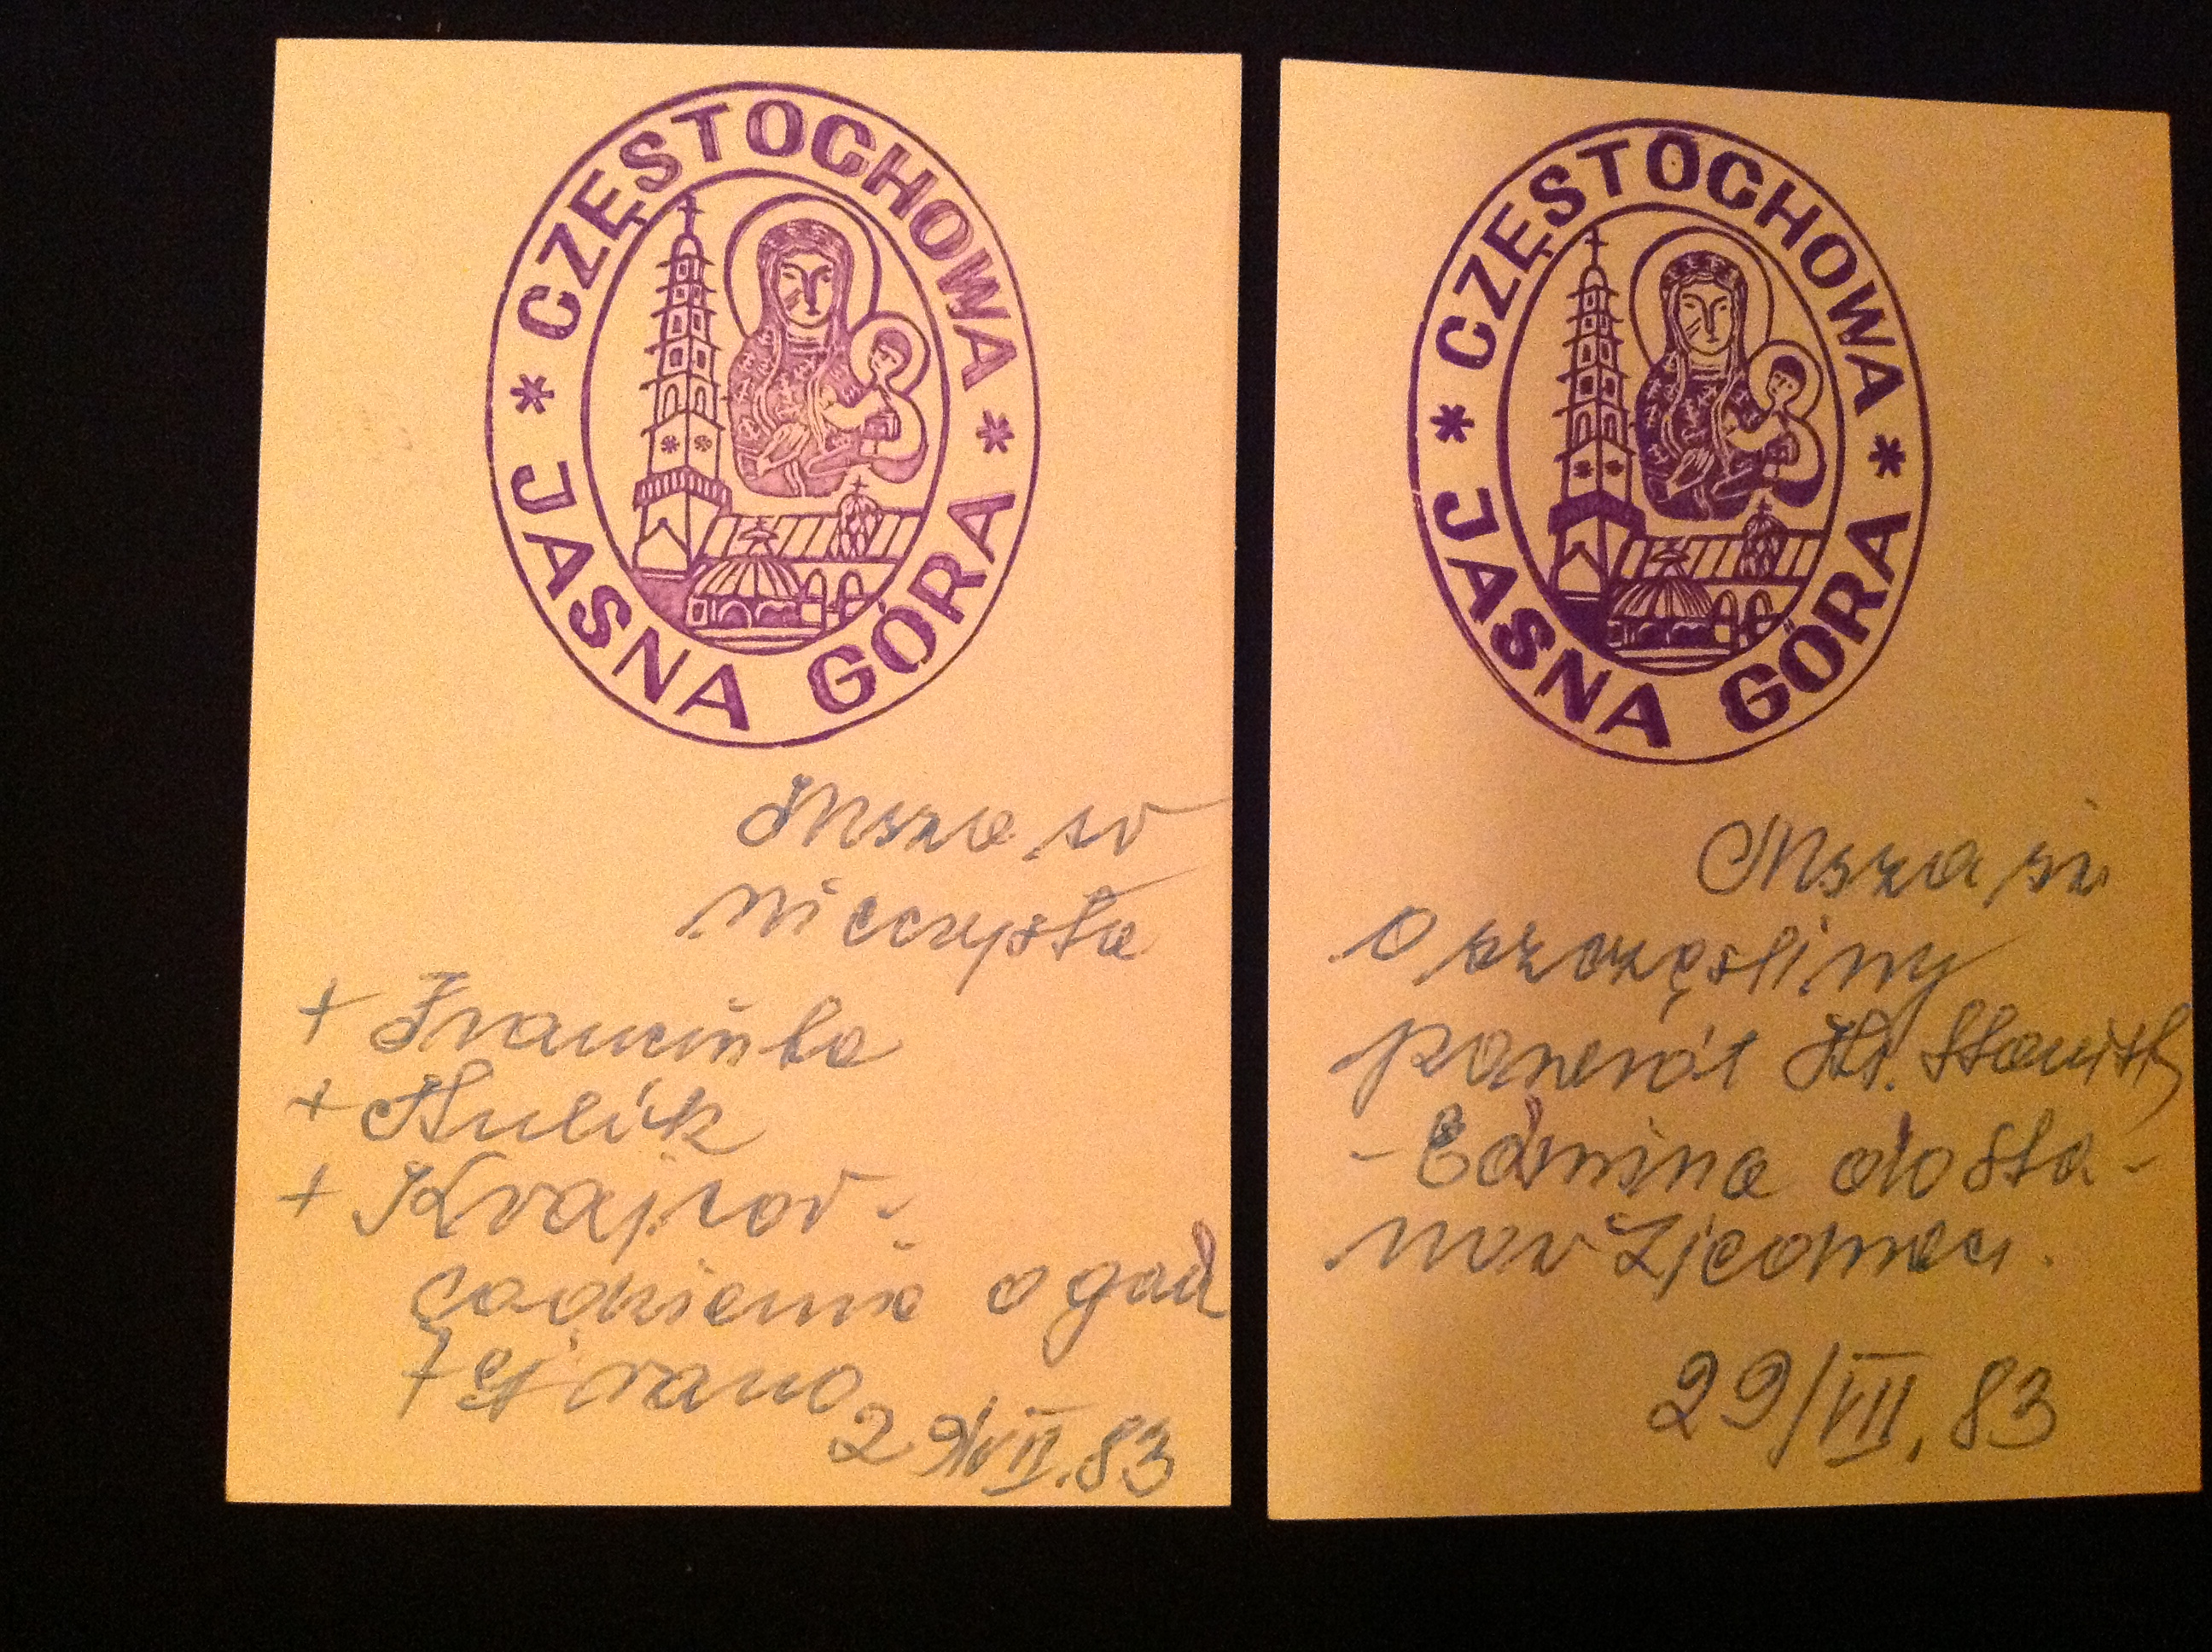 * CZĘSTOCHOWA *
JASNA GÓRA
Msza św
wieczysta
+ Franciszka
+ Hulík
+ Krajcov
codziennie o god
7ej rano
29/VII.83
* CZĘSTOCHOWA *
JASNA GÓRA
Msza św.
o szczęśliwy
powrót
Edwina do Sta-
nów Zjednocz.
29/VII.83